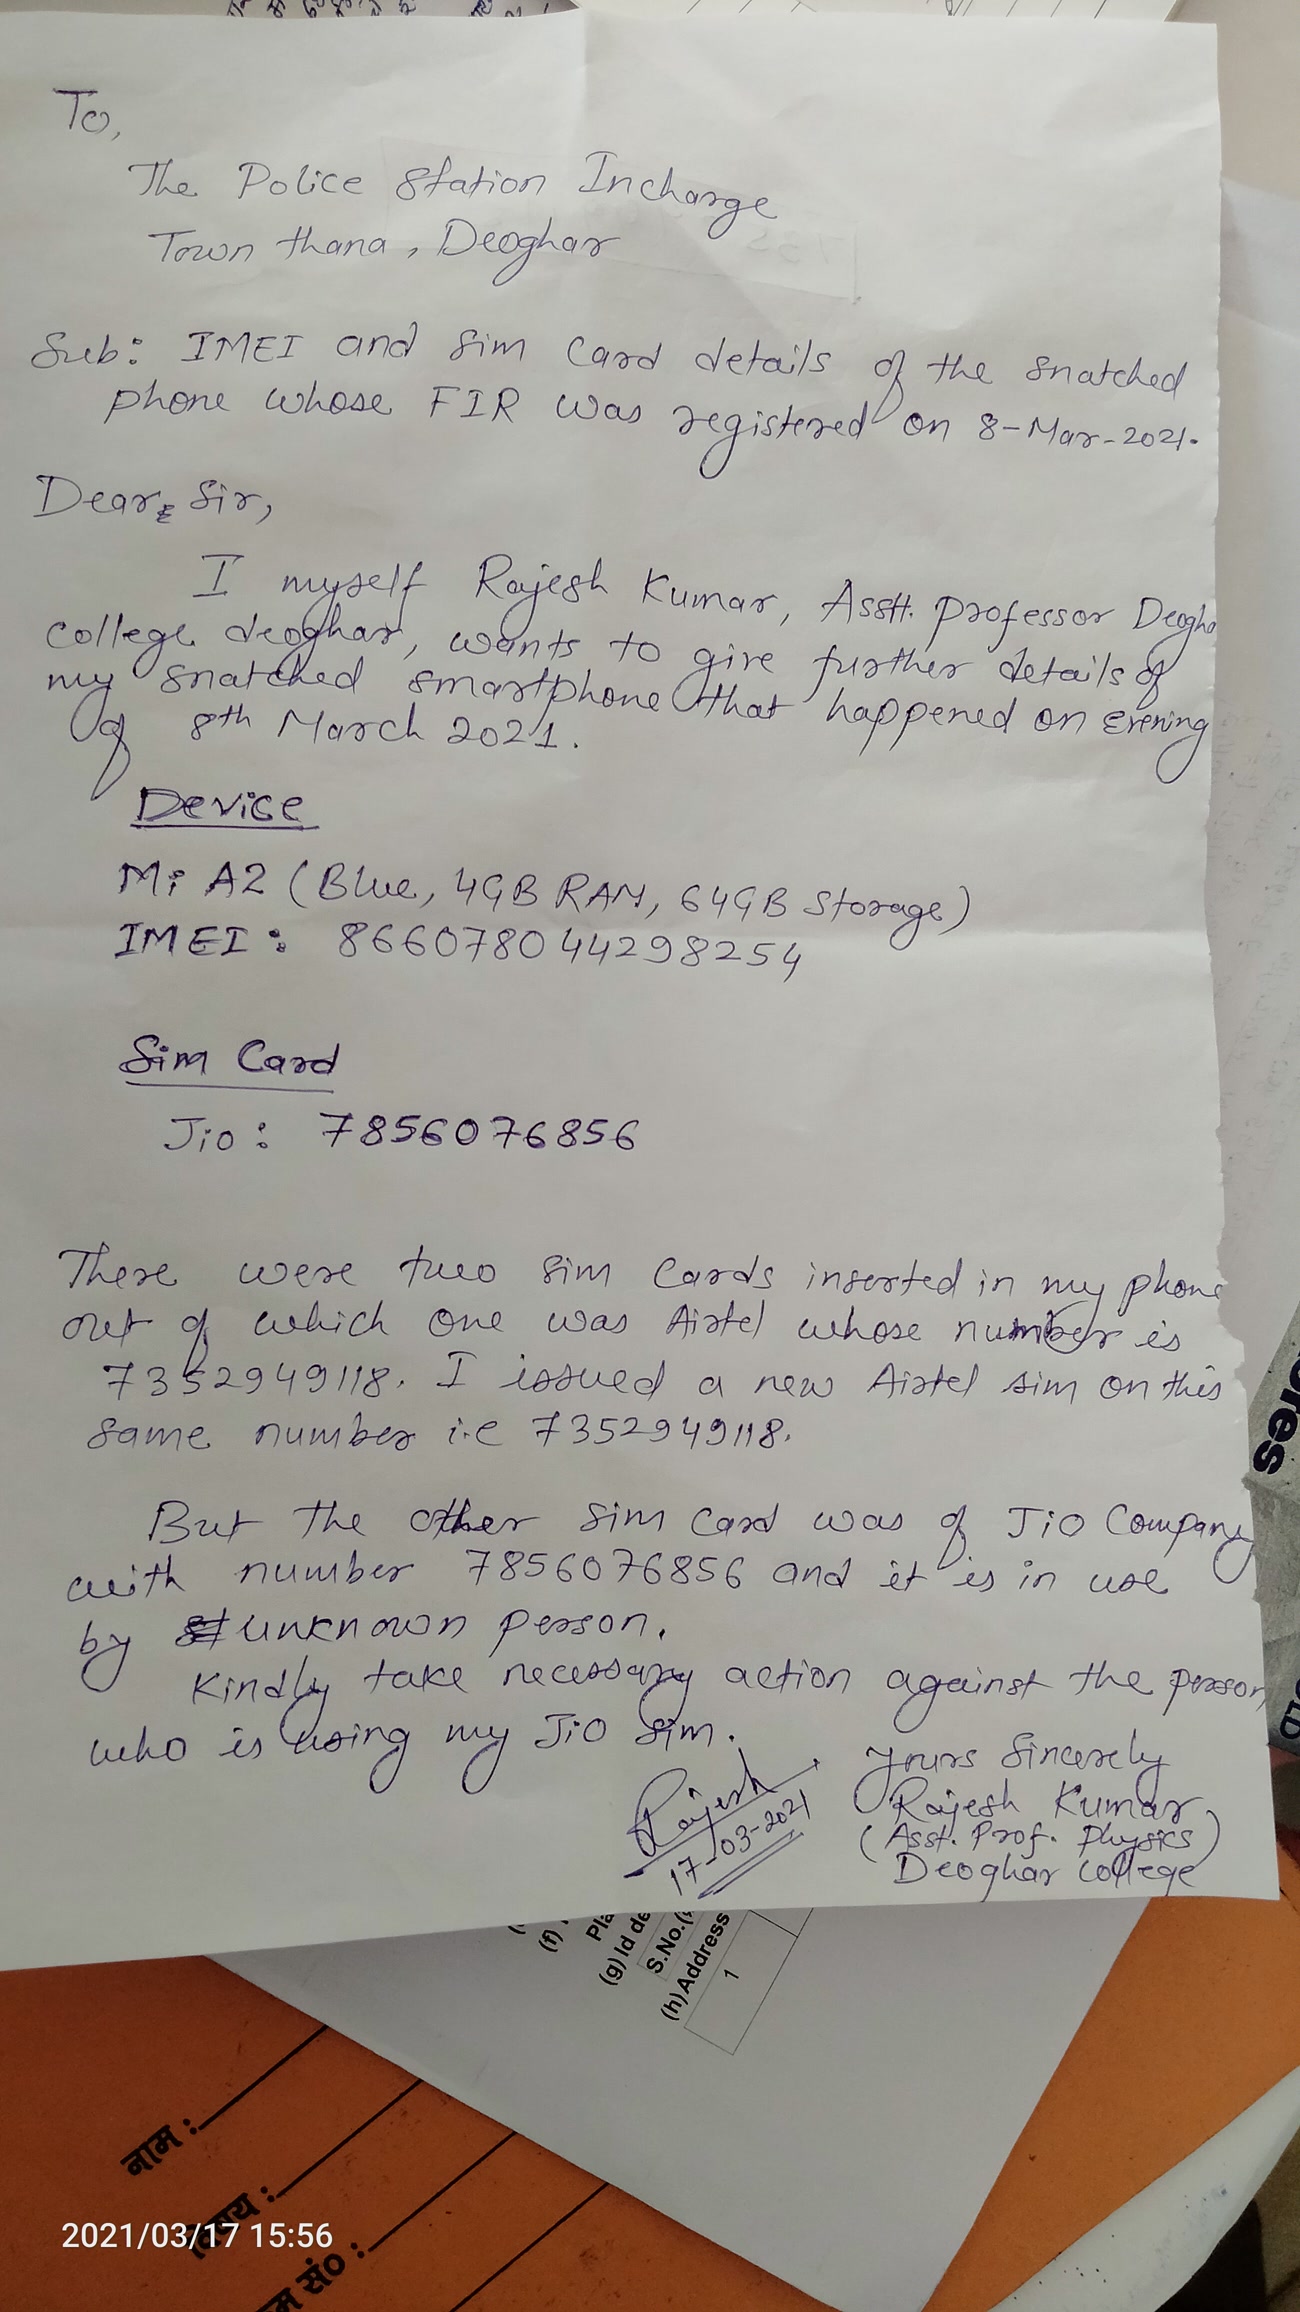 To,
The Police Station Incharge
Town thana, Deoghar
Sub: IMEI and Sim Card details of the snatched
phone whose FIR was registered on 8-Mar-2021.
Dear Sir,
I myself Rajesh Kumar, Asstt. professor Deogha
College deoghar, wants to give further details of
my snatched smartphone that happened on Evening
of 8th March 2021.
Device
Mi A2 (Blue, 4GB RAM, 64GB Storage)
IMEI: 866078044298254
Sim Card
Jio: 7856076856
There were two Sim Cards inserted in my phone
out of which one was Airtel whose number is
7352949118. I issued a new Airtel sim on this
same number i.e 7352949118.
But the other Sim Card was of JIO Company
with number 7856076856 and it is in use
by unknown person.
Kindly take necessary action against the person
who is using my JIO Sim.
Yours Sincerely
Rajesh
Rajesh Kumar
17-03-2021
(Asst. Prof. Physics)
Deoghar College
ores
(f)
(g) Id de
S.No.
(h) Address
1
नाम :
विषय :
सं० :
2021/03/17 15:56